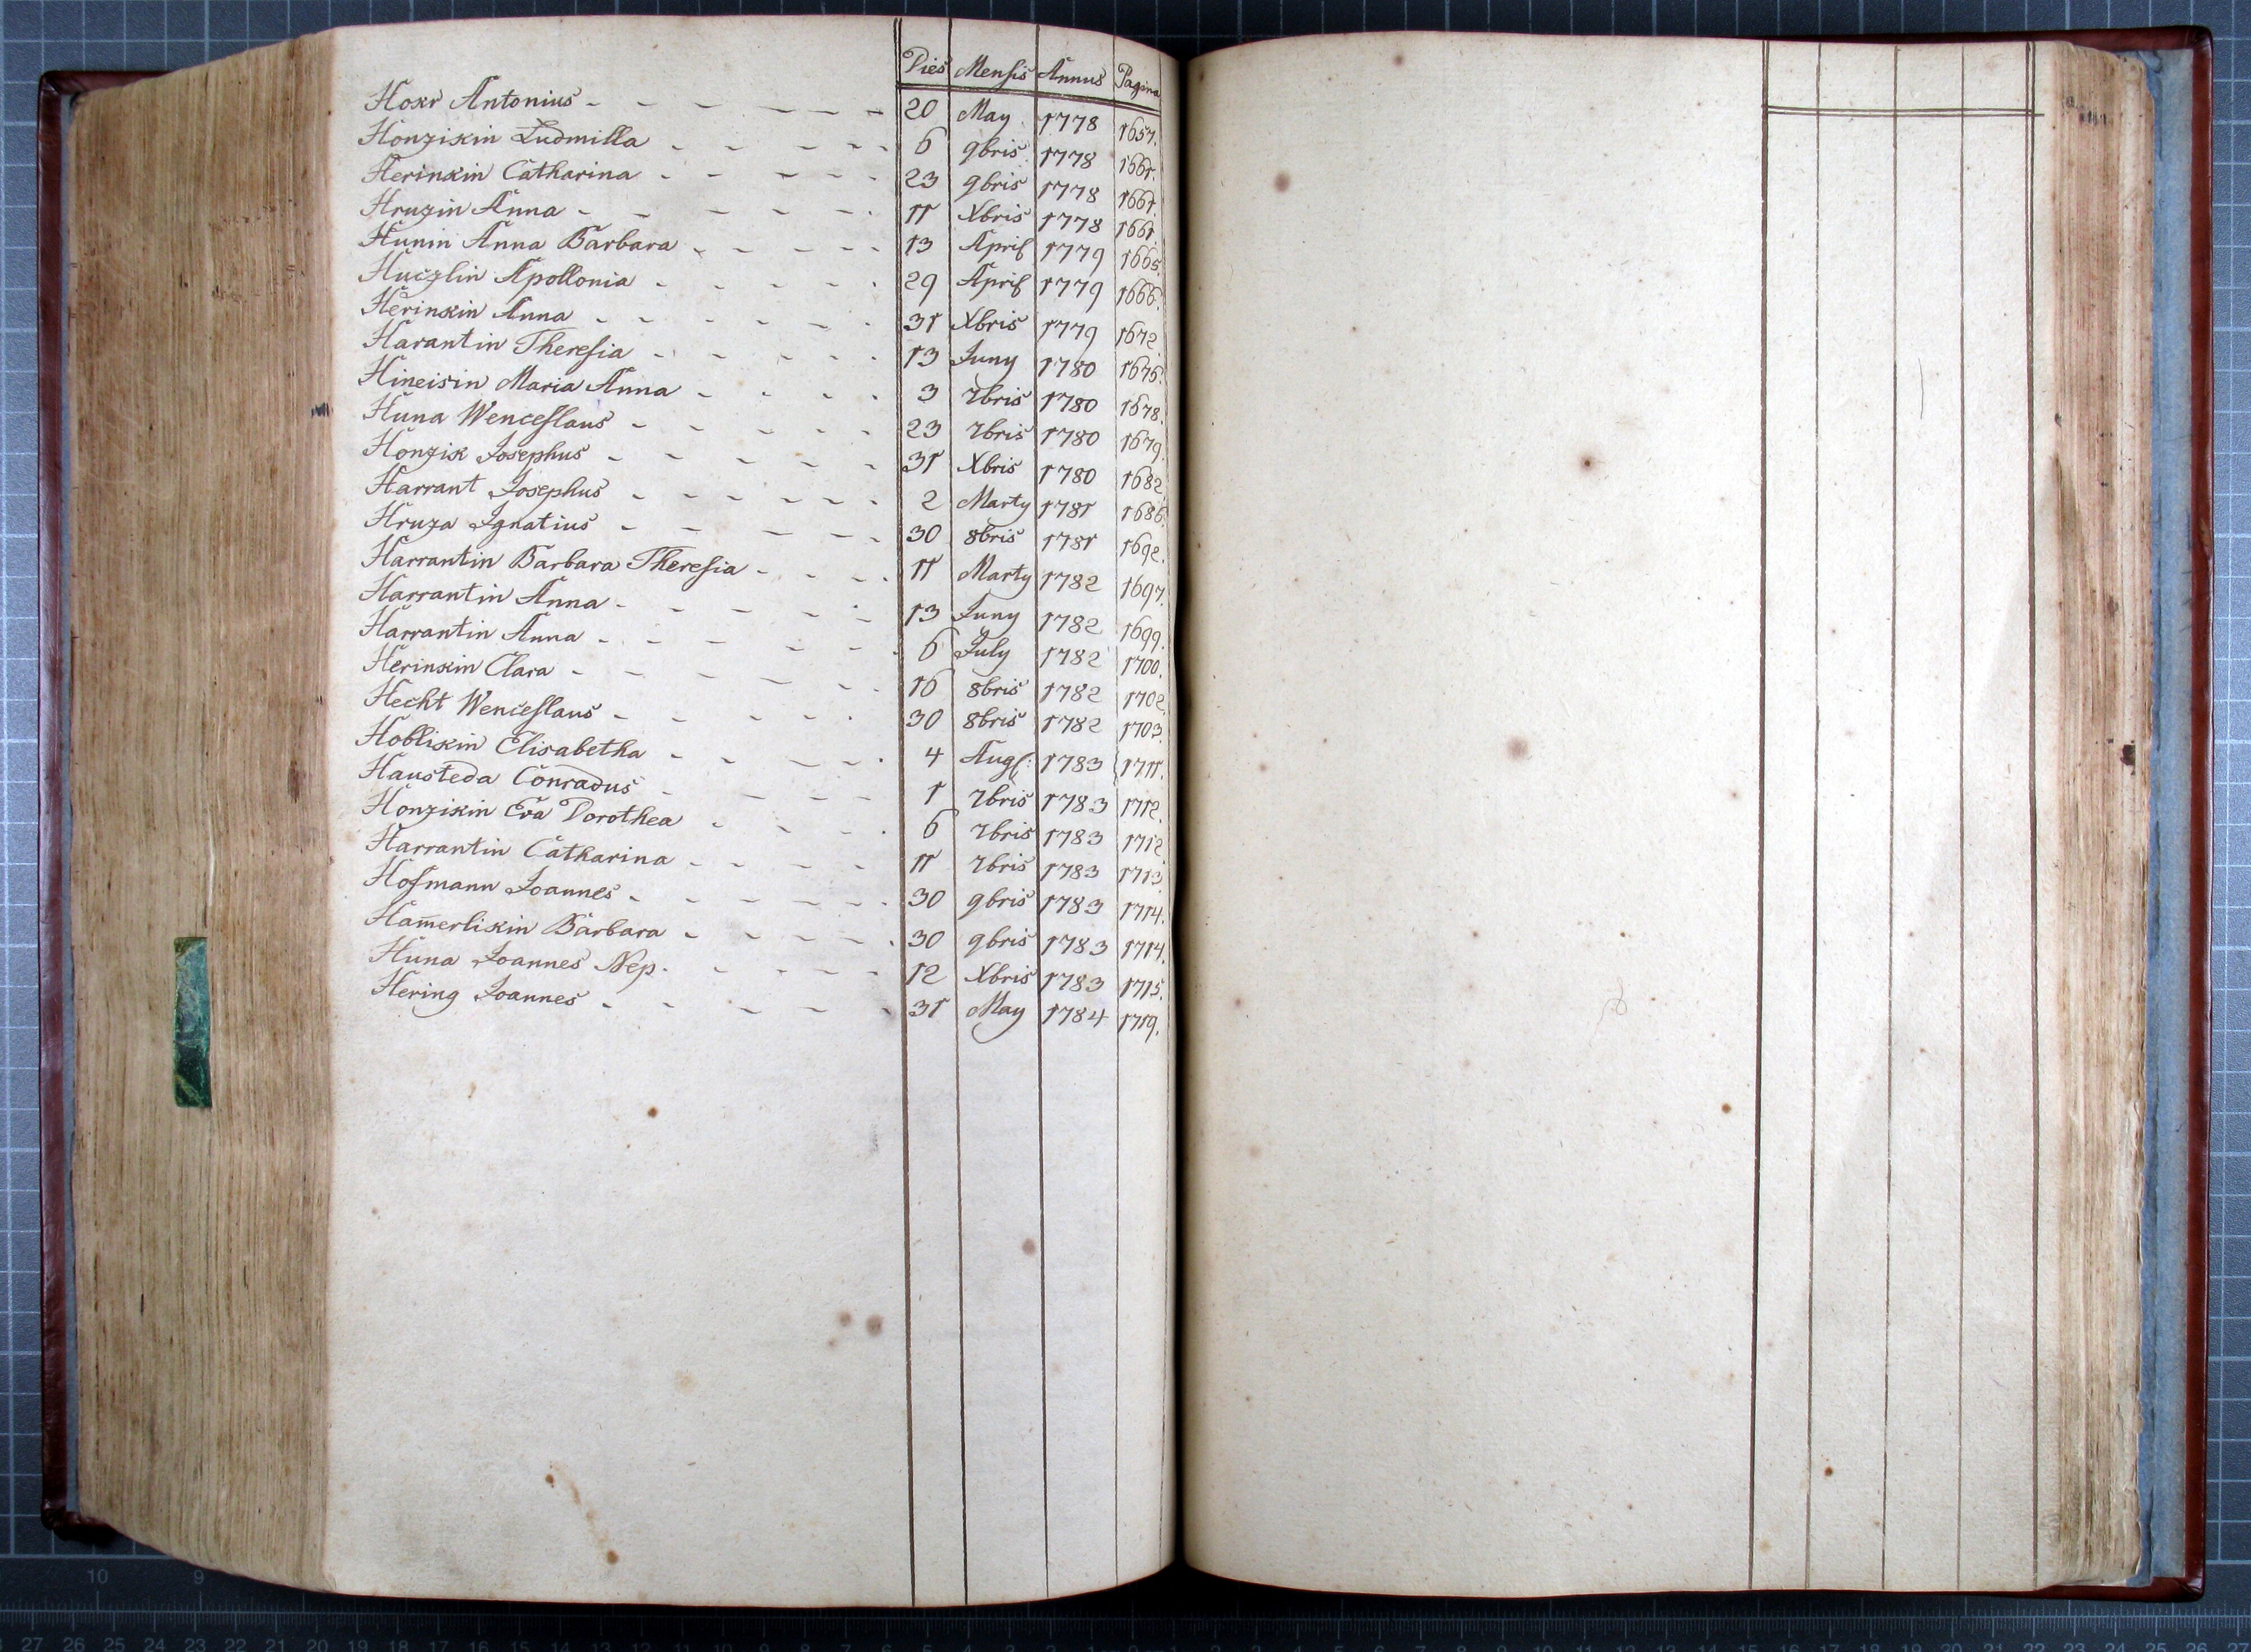 Dies Mensis Annus Pagina
Hokr Antonius - - - - - - 20 May 1778 1657.
Honzikin Ludmilla - - - - - 6 9bris 1778 1661.
Herinkin Catharina - - - - - 23 9bris 1778 1661.
Hruzin Anna - - - - - - 11 Xbris 1778 1661.
Hunin Anna Barbara - - - - - 13 April 1779 1665.
Huczlin Apollonia - - - - - 29 April 1779 1666.
Herinkin Anna - - - - - - 31 Xbris 1779 1672.
Harantin Theresia - - - - - 13 Juny 1780 1675.
Hineisin Maria Anna - - - - 3 7bris 1780 1678.
Huna Wenceslaus - - - - - 23 7bris 1780 1679.
Honzik Josephus - - - - - - 31 Xbris 1780 1682.
Harrant Josephus - - - - - - 2 Marty 1781 1686.
Hruza Ignatius - - - - - - 30 8bris 1781 1692.
Harrantin Barbara Theresia - - - - 11 Marty 1782 1697.
Harrantin Anna - - - - - - 13 Juny 1782 1699.
Harrantin Anna - - - - - - 6 July 1782 1700.
Herinkin Clara - - - - - - 16 8bris 1782 1702.
Hecht Wenceslaus - - - - - 30 8bris 1782 1703.
Hoblikin Elisabetha - - - - - 4 Aug: 1783 1711.
Hausteda Conradus - - - - 1 7bris 1783 1712.
Honzikin Eva Dorothea - - - - 6 7bris 1783 1712.
Harrantin Catharina - - - - - 11 7bris 1783 1713.
Hofmann Joannes - - - - - - 30 9bris 1783 1714.
Ham̅erlikin Barbara - - - - - 30 9bris 1783 1714.
Huna Joannes Nep. - - - - - 12 Xbris 1783 1715.
Hering Joannes - - - - - - 31 May 1784 1719.
10 9
27 26 25 24 23 22 21 20 19 18 17 16 15 14 13 12 11 10 9 8 7 6 5 4 3 2